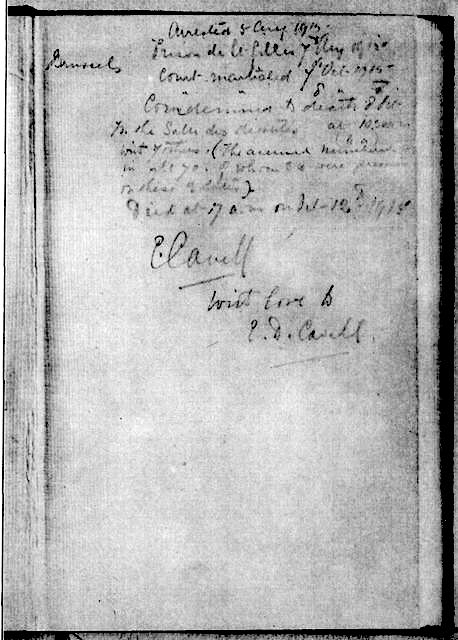 Arrested 5 Aug 1915.
Brussels Prison de St Gilles 7th Aug 1915
Court-martialed 7th Oct. 1915
Condemned to death 8th Oct
In the Salle des deputés at 10.30
with 7 others. (The accused numbered
in all 70. Of whom were present
on these dates).
Died at 7 a.m. on Oct. 12th 1915
E. Cavell
With love to
E. D. Cavell.